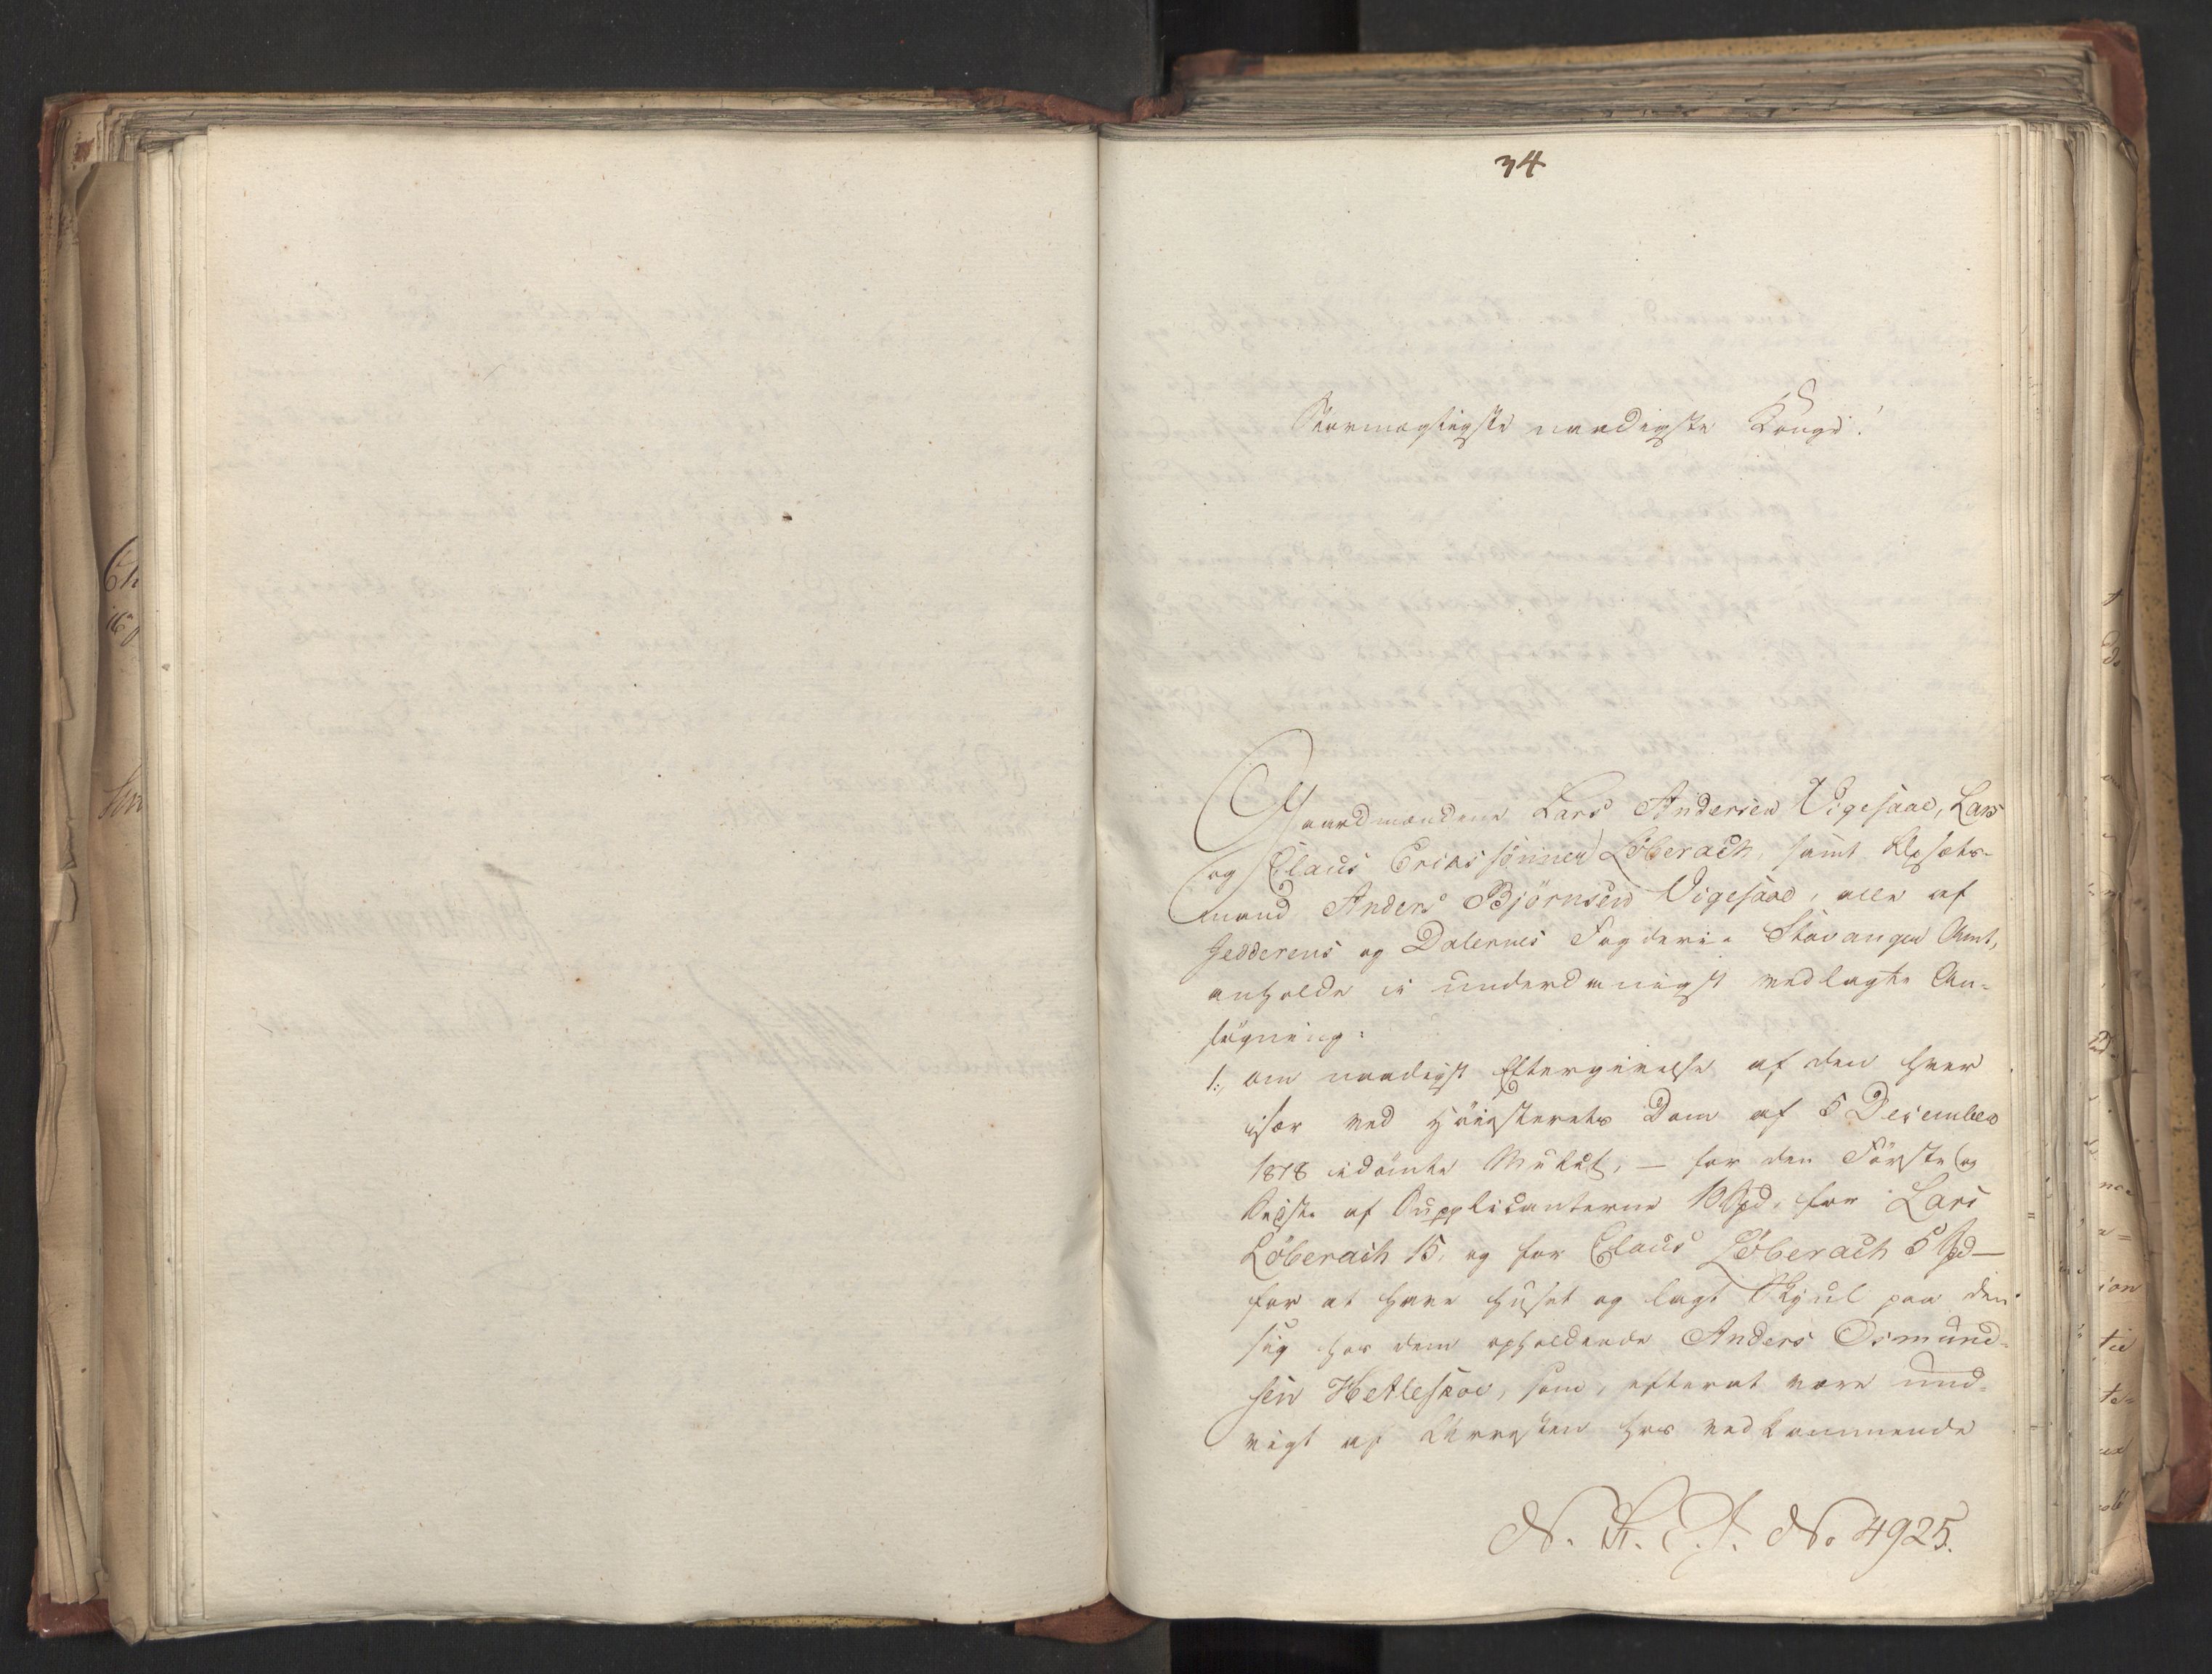 34
Stormægtigste naadigste Konge!
Gaardmændene Lars Andersen Vigesaae, Lars
og Claus Erikssönner Löberach, samt Opsöts-
mand Anders Björnsen Vigesaae, alle af
Jedderens og Dalernes Fogderi i Stavanger Amt,
anholde i underdanigst vedlagte An-
søgning:
1, om naadigst Eftergivelse af den hver
især ved Höiesterets Dom af 5 December
1818 idömte Mulct, — for den Förste og
Sidste af Supplicanterne 10 Spd. for Lars
Löberach 15, og for Claus Löberach 5 Spd —
for at have huset og lagt Skjul paa den
sig hos dem opholdende Anders Osmund-
sen Hetlesaae, som, efterat være und-
vigt af Arresten hos vedkommende
N. R. C. J. No 4925.